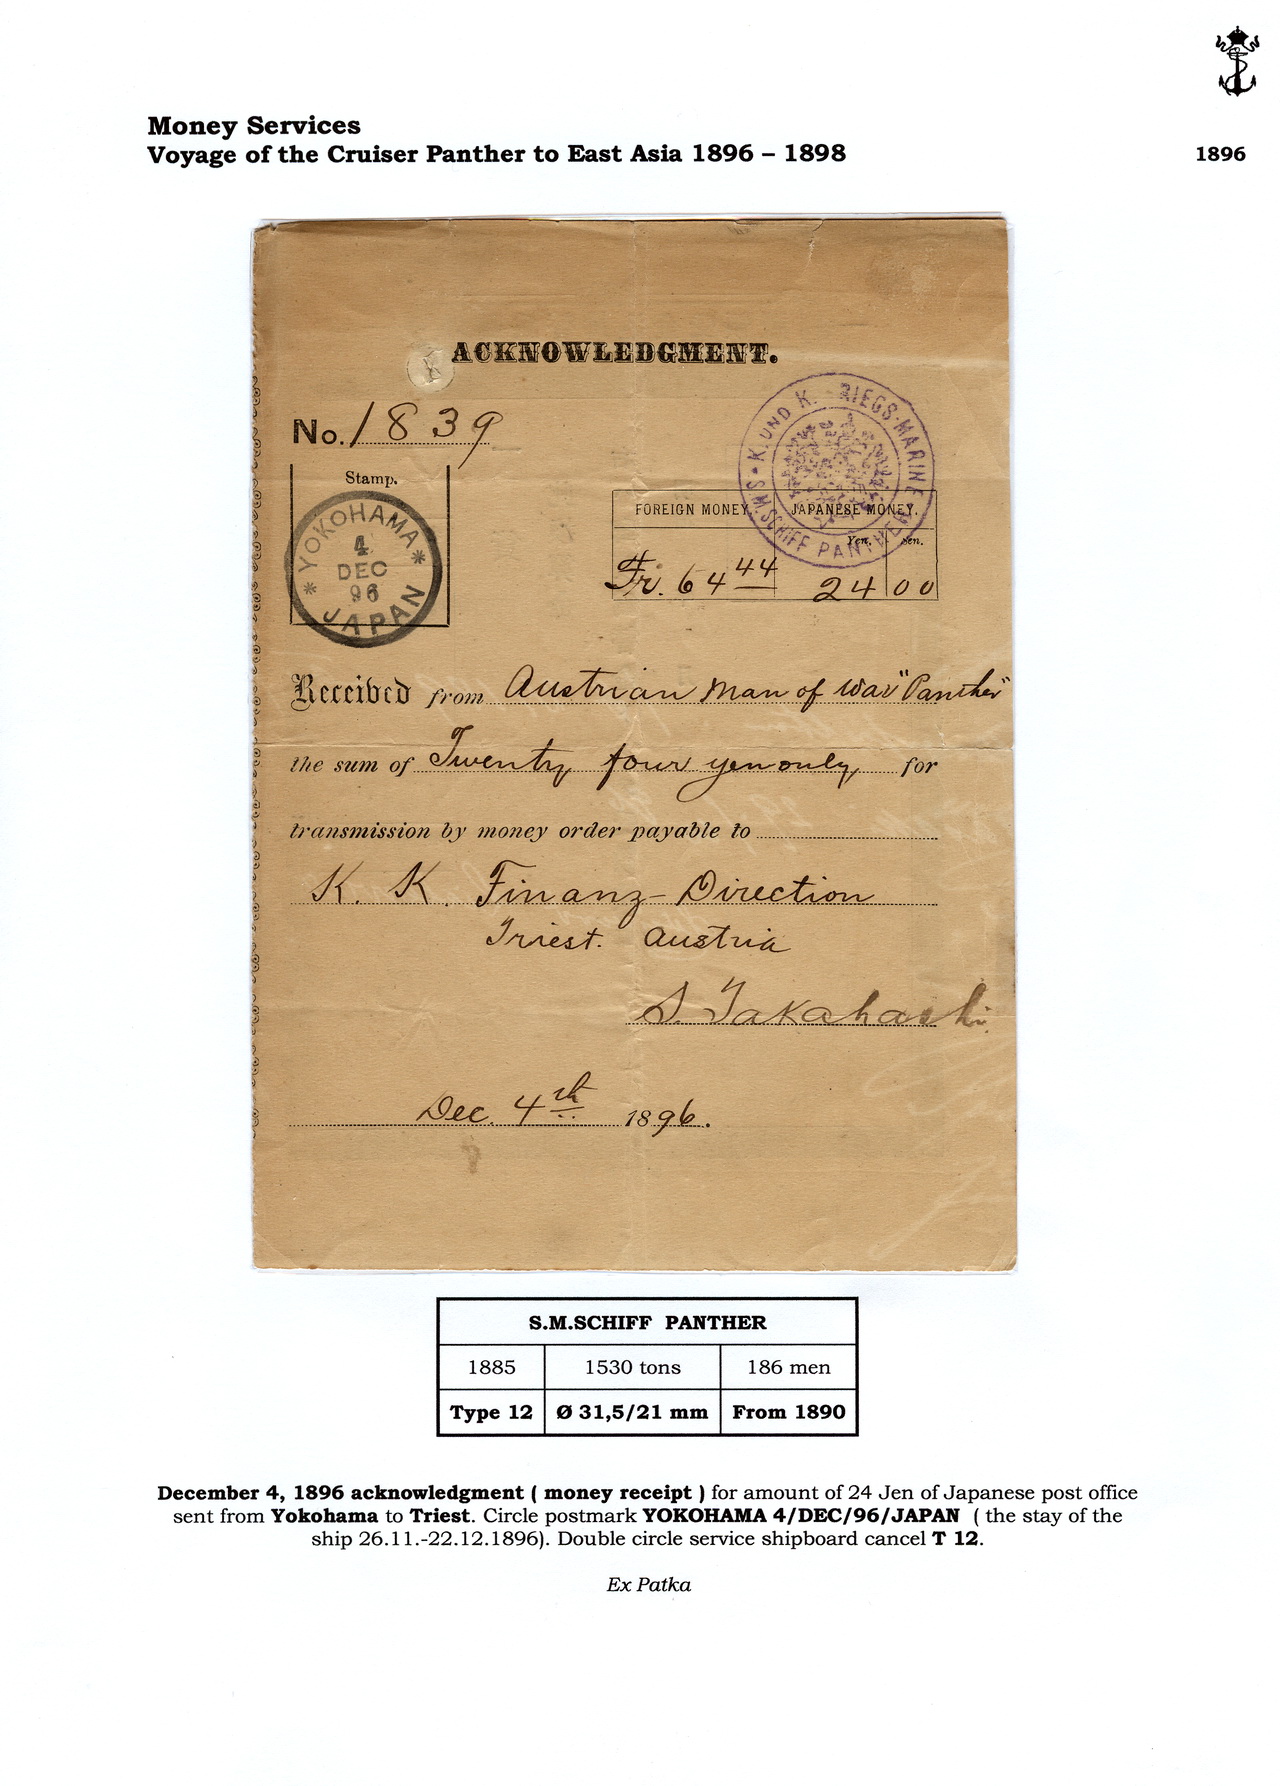 Money Services
Voyage of the Cruiser Panther to East Asia 1896 – 1898
1896
ACKNOWLEDGMENT.
No. 1839
Stamp.
* YOKOHAMA *
4
DEC
96
JAPAN
K. UND K. RIEGS-MARINE
S.M.SCHIFF PANTHER
FOREIGN MONEY. JAPANESE MONEY.
Yen. Sen.
Fr. 64 44 24 00
Received from Austrian Man of War "Panther"
the sum of Twenty four yen only, for
transmission by money order payable to
K. K. Finanz-Direction
Triest. Austria
S. Takahashi
Dec. 4th 1896.
S.M.SCHIFF PANTHER
1885 1530 tons 186 men
Type 12 Ø 31,5/21 mm From 1890
December 4, 1896 acknowledgment ( money receipt ) for amount of 24 Jen of Japanese post office
sent from Yokohama to Triest. Circle postmark YOKOHAMA 4/DEC/96/JAPAN ( the stay of the
ship 26.11.-22.12.1896). Double circle service shipboard cancel T 12.
Ex Patka